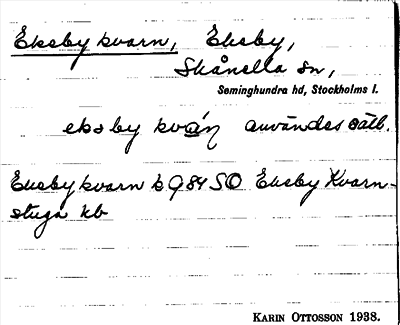 Eksby kvarn, Eksby,
Skånella sn,
Seminghundra hd, Stockholms l.
eksby kvan användes sällt.
Eksby kvarn k Q 84 SO Eksby Kvarn-
stuga kb
KARIN OTTOSSON 1938.